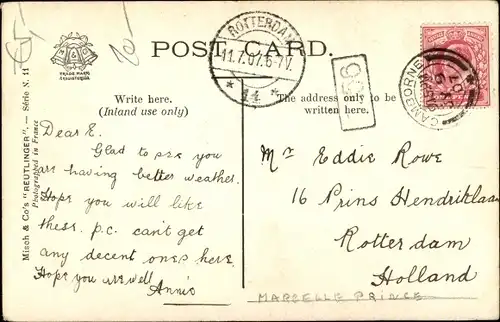 POST CARD.
TRADE MARK
REGISTERED
ROTTERDAM
11.7.07.6-7V.
14
756
CAMBORNE
Misch & Co's "REUTLINGER" — Série N. 11
Photographed in France
Write here.
(Inland use only)
The address only to be
written here.
Dear E.
Glad to see you
are having better weather.
Hope you will like
these. p.c. can't get
any decent ones here.
Hope you are well
Annie
Mr Eddie Rowe
16 Prins Hendriklaan
Rotterdam
Holland
MARSELLE PRINCE